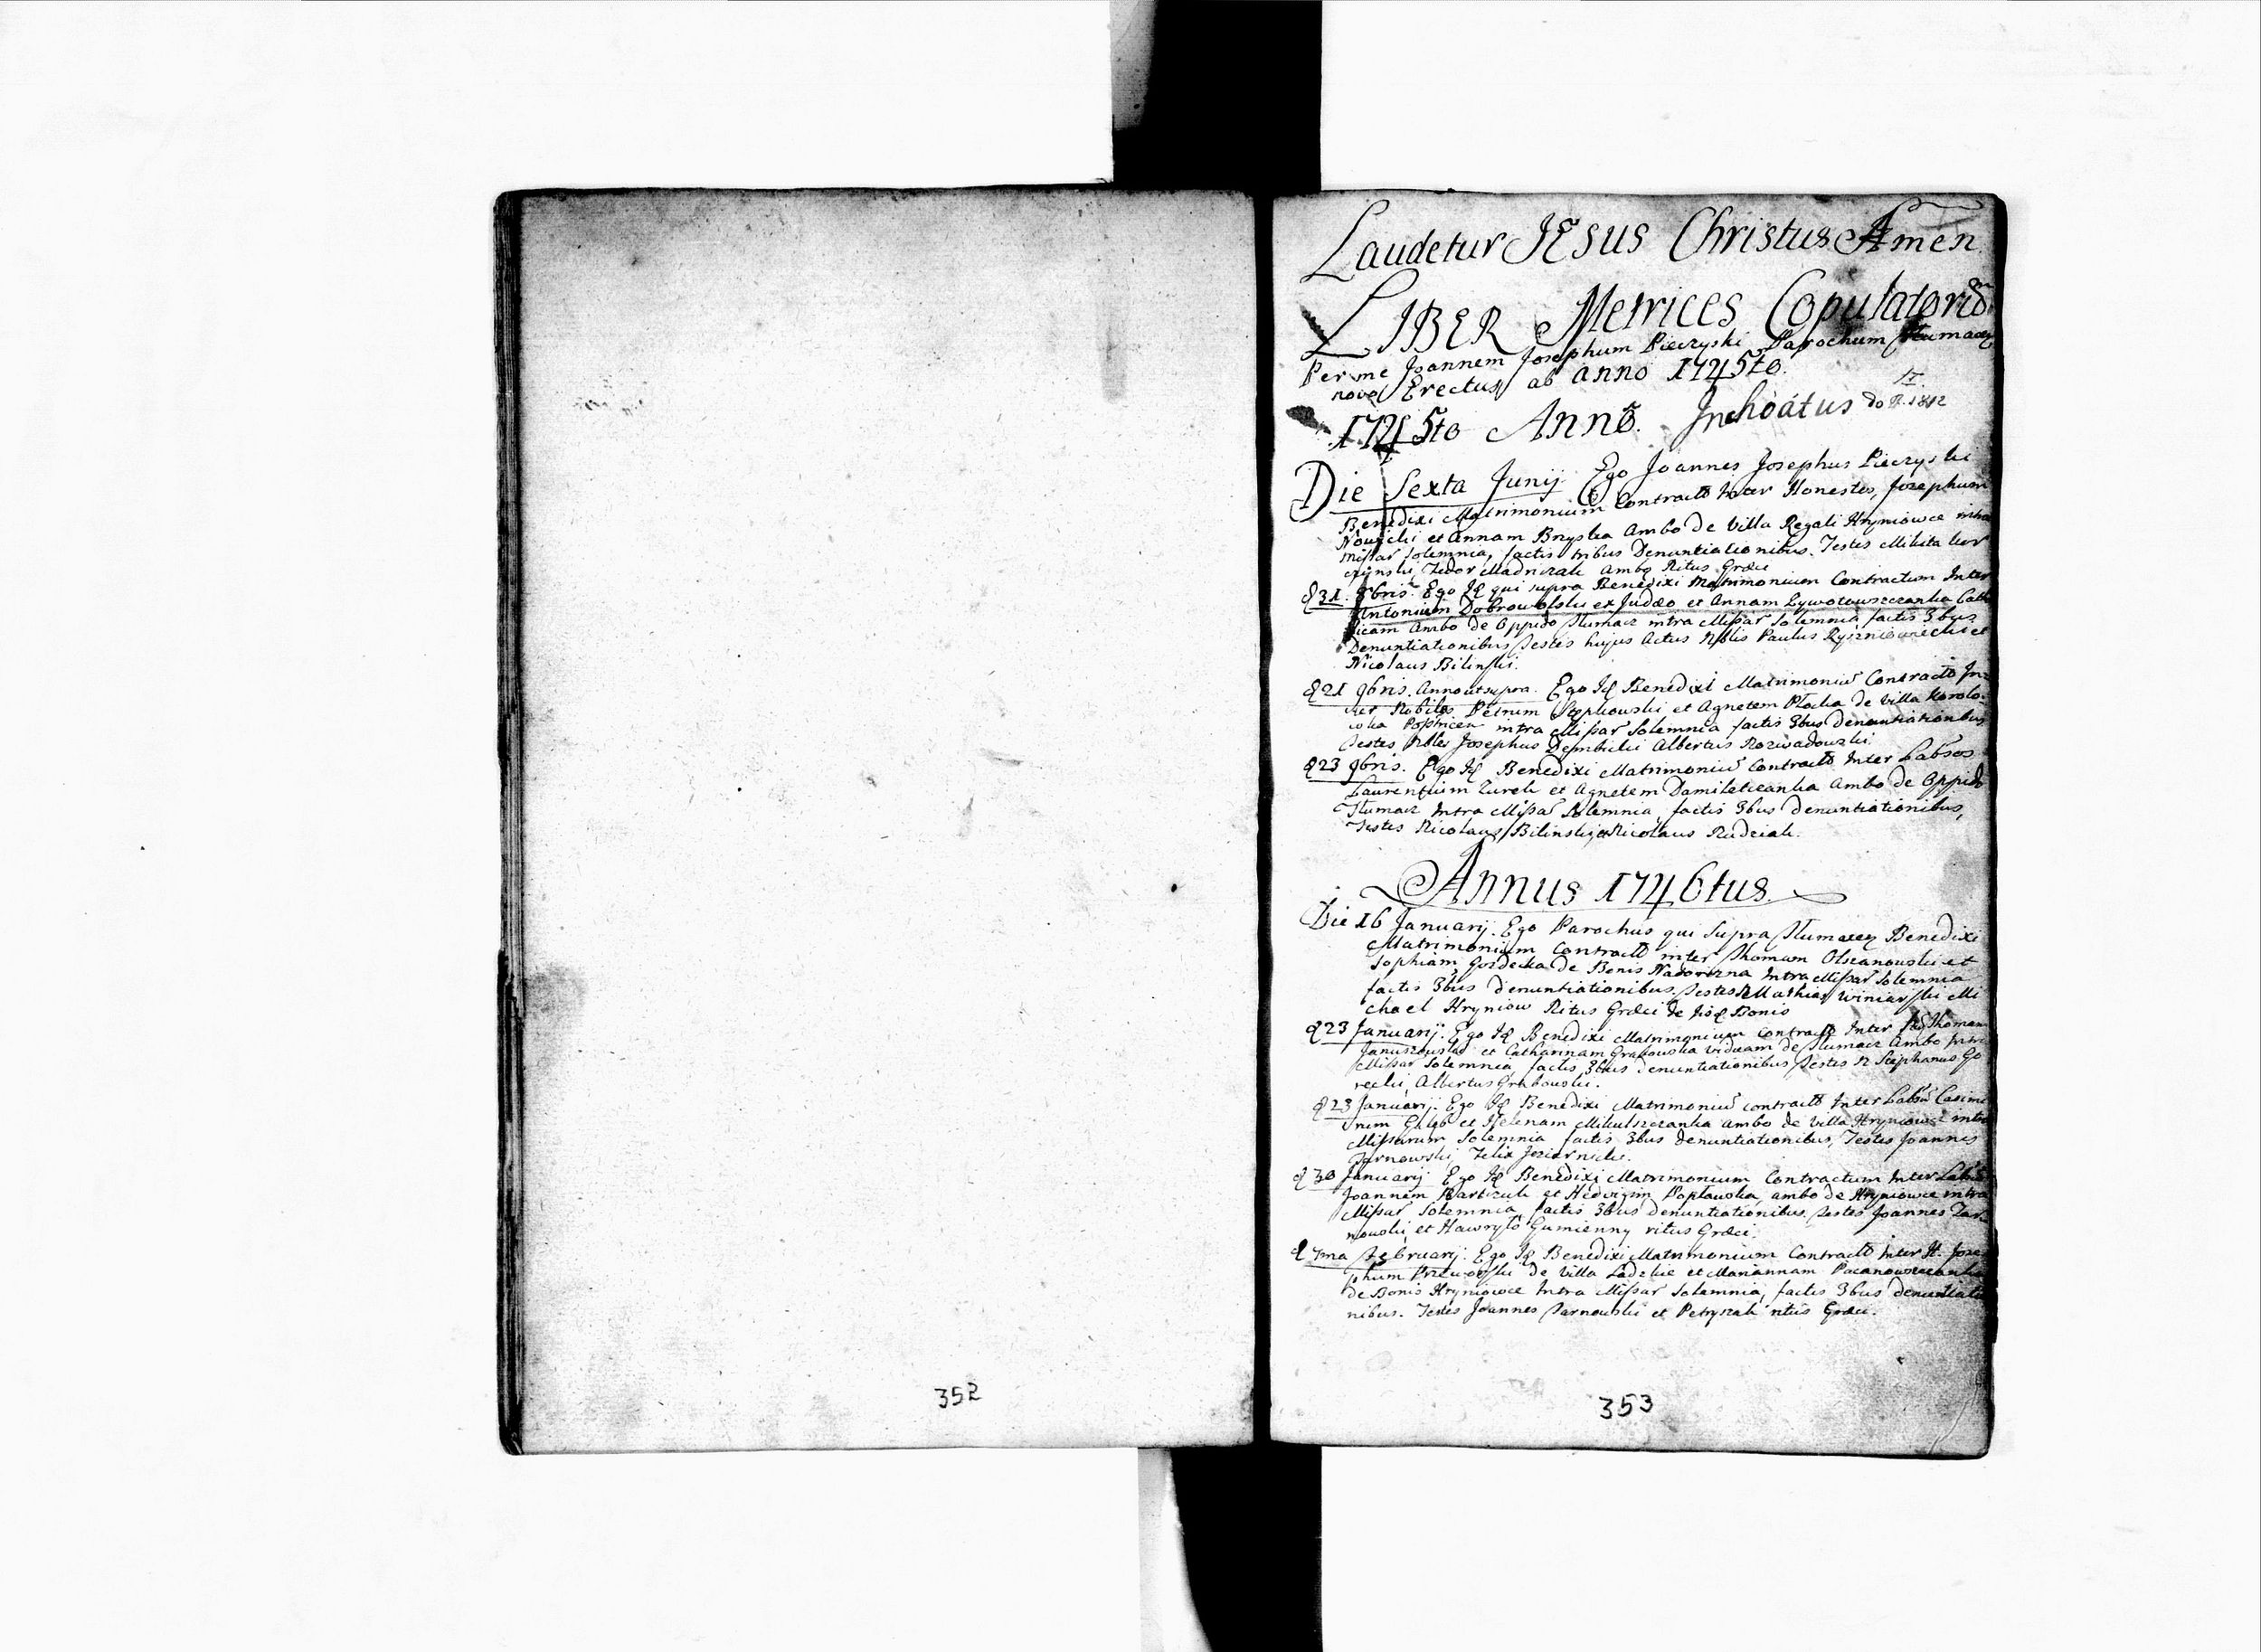 Laudetur JEsus Christus Amen
LIBER Metrices Copulatorū
Per me Joannem Josephum Pieczyski Parochum Tłumacz
novę Erectus ab anno 1745to.
1745to Annō. Inchoátus do R. 1812
Die Sexta Junij Ego Joannes Josephus Pieczyski
Benedixi Matrimonium Contractū Inter Honestos, Josephum
et Annam Bryska Ambo de Villa Regali Hryniowce intra
Missar solemnia, factis tribus Denuntiationibus. Testes Mikita
Fedor Madriczak ambo Ritus Græci
d 31. 8bris. Ego Id qui supra Benedixi Matrimonium Contractum Inter
Antonium Dobrowolski ex Judæo et Annam Cath
licam Ambo de Oppido Tłumacz intra Missar Solemnia factis 3bus
Denuntiationibus Testes hujus Actus Nblis Paulus et
Nicolaus Bilinski.
d 21 9bris. Anno ut supra. Ego Id Benedixi Matrimoniū Contractū In-
ter Nobiles Petrum Stępkowski et Agnetem Płocka de Villa Korolo-
intra Missar Solemnia factis 3bus denuntiationibus
Testes Nbles Josephus Dembicki Albertus Rozwadowski.
d 23 9bris. Ego Id Benedixi Matrimoniū Contractū Inter Labsos
Laurentium Zurek et Agnetem Ambo de Oppido
Tłumacz Intra Missar Solemnia, factis 3bus denuntiationibus,
Testes Nicolaus Bilinski, Nicolaus Rudziak.
Annus 1746tus.
Die 16 Januarij. Ego Parochus qui Supra Tłumacz Benedixi
Matrimonium Contractū inter Thomam Olszanowski et
Sophiam Gozdecka de Bonis Nadwirzna Intra Missar Solemnia
factis 3bus denuntiationibus. Testes Mathias Winiarski Mi
chael Hryniow Ritus Græci de Bonis
d 23 Januarij. Ego Id Benedixi Matrimonium Contractū Inter Thomam
Januszowski et Catharinam Grabowska viduam de Tłumacz Ambo Intra
Missar Solemnia, factis 3bus denuntiationibus Testes N Stephanus Go
recki, Albertus Grabowski.
d 23 Januarij. Ego Id Benedixi Matrimoniū contractū Inter Labsū Casimi
rum et Helenam Mikulszczanka ambo de Villa Hryniowce intra
Missarum Solemnia factis 3bus denuntiationibus, Testes Joannes
Tarnowski, Felix Jeziernicki.
d 30 Januarij Ego Id Benedixi Matrimonium Contractum Inter
Joannem et Hedvigim Popławska, ambo de Hryniowce intra
Missar Solemnia, factis 3bus denuntiationibus. Testes Joannes Tar-
nowski, et Hawryło Gumienny ritus Græci.
d 7ma Februarij. Ego Id Benedixi Matrimonium Contractū Inter H. Jose
phum de Villa Ladzkie et Mariannam
de Bonis Hryniowce Intra Missar Solemnia, factis 3bus denuntiatio
nibus. Testes Joannes Tarnowski et Petryszak ritus Græci.
352
353